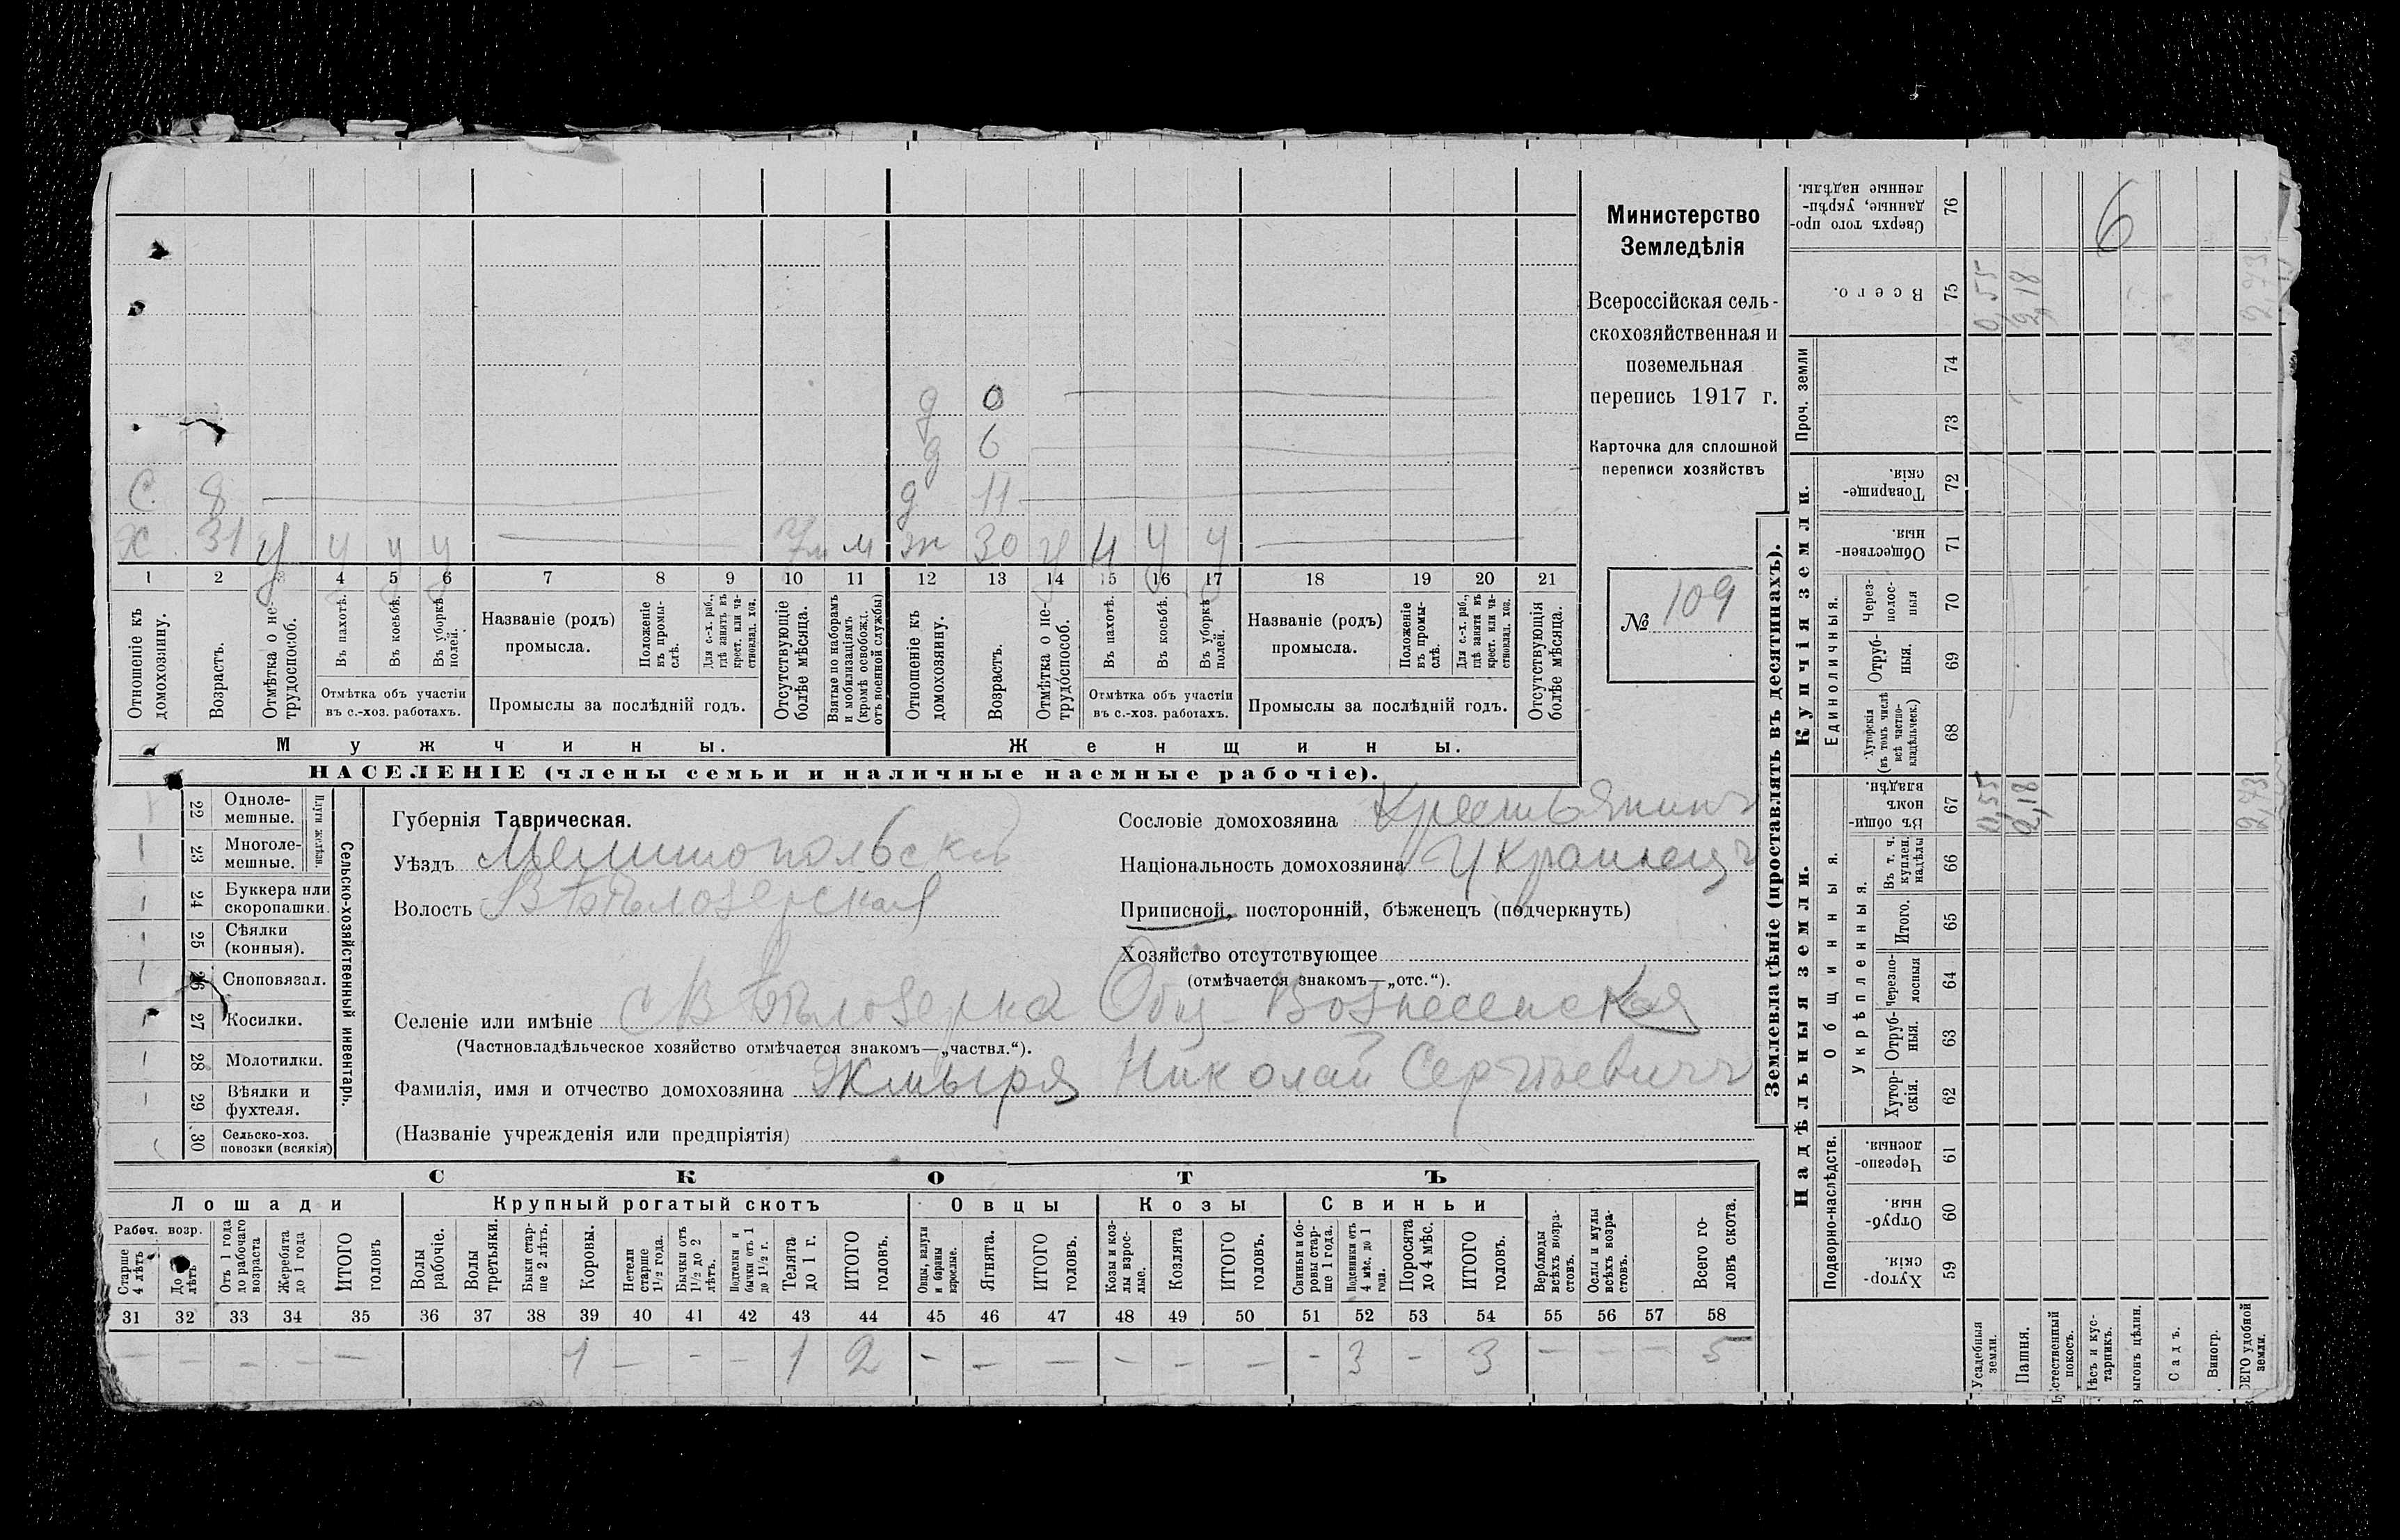 Министерство
Земледѣлія
Всероссійская сель-
скохозяйственная и
поземельная
перепись 1917 г.
Карточка для сплошной
переписи хозяйствъ
№ 109
д 0
д 6
С 8 д 11
Х 31 у у у у м ж 30 у у у у
1 2 3 4 5 6 7 8 9 10 11 12 13 14 15 16 17 18 19 20 21
Отношеніе къ домохозяину.
Возрастъ.
Отмѣтка о не-трудоспособ.
Въ пахотѣ.
Въ косьбѣ.
Въ уборкѣ полей.
Отмѣтка объ участіи
въ с.-хоз. работахъ.
Названіе (родъ)
промысла.
Положеніе въ промы-слѣ.
Для с.-х. раб., гдѣ занятъ въ крест. или ча-стновлад. хоз.
Промыслы за послѣдній годъ.
Отсутствующіе болѣе мѣсяца.
Взятые по наборамъ и мобилизаціямъ (кромѣ освобожд. отъ военной службы)
Отношеніе къ домохозяину.
Возрастъ.
Отмѣтка о не-трудоспособ.
Въ пахотѣ.
Въ косьбѣ.
Въ уборкѣ полей.
Отмѣтка объ участіи
въ с.-хоз. работахъ.
Названіе (родъ)
промысла.
Положеніе въ промы-слѣ.
Для с.-х. раб., гдѣ занята въ крест. или ча-стновлад. хоз.
Промыслы за послѣдній годъ.
Отсутствующія болѣе мѣсяца.
Мужчины. Женщины.
НАСЕЛЕНІЕ (члены семьи и наличные наемные рабочіе).
Сельско-хозяйственный инвентарь.
Плуги желѣзн.
22 Одноле-мешные.
23 Многоле-мешные.
24 Буккера или скоропашки.
25 Сѣялки (конныя).
26 Сноповязал.
27 Косилки.
28 Молотилки.
29 Вѣялки и фухтеля.
30 Сельско-хоз. повозки (всякія)
Губернія Таврическая.
Уѣздъ Мелитопольскій
Волость В Бѣлозерская
Сословіе домохозяина Крестьянинъ
Національность домохозяина Украинецъ
Приписной, посторонній, бѣженецъ (подчеркнуть)
Хозяйство отсутствующее
(отмѣчается знакомъ—„отс.“).
Селеніе или имѣніе С В Бѣлозерка Общ. Вознесенская
(Частновладѣльческое хозяйство отмѣчается знакомъ—„частвл.“).
Фамилія, имя и отчество домохозяина Жмыря Николай Сергѣевичъ
(Названіе учрежденія или предпріятія)
СКОТЪ
Лошади Крупный рогатый скотъ Овцы Козы Свиньи
Рабоч. возр.
Старше 4 лѣтъ
До 4 лѣтъ
Отъ 1 года до рабочаго возраста
Жеребята до 1 года
ИТОГО головъ
Волы рабочіе.
Волы третьяки.
Быки стар-ше 2 лѣтъ.
Коровы.
Нетели старше 1½ года.
Бычки отъ 1½ до 2 лѣтъ.
Подтелки и бычки отъ 1 до 1½ г.
Телята до 1 г.
ИТОГО головъ.
Овцы, валухи и бараны взрослые.
Ягнята.
ИТОГО головъ.
Козы и коз-лы взрос-лые.
Козлята
ИТОГО головъ.
Свиньи и бо-ровы стар-ше 1 года.
Подсвинки отъ 4 мѣс. до 1 года.
Поросята до 4 мѣс.
ИТОГО головъ.
Верблюды всѣхъ возра-стовъ.
Ослы и мулы всѣхъ возра-стовъ.
Всего го-ловъ скота.
31 32 33 34 35 36 37 38 39 40 41 42 43 44 45 46 47 48 49 50 51 52 53 54 55 56 57 58
— — — — — 1 — — — 1 2 — — — — — — — 3 — 3 — — — 5
Землевладѣніе (проставлять въ десятинахъ).
Надѣльныя земли.
Купчія земли.
Проч. земли
Подворно-наслѣдств.
Общинныя.
Укрѣпленныя.
Единоличныя.
Сверхъ того про-данные, укрѣп-ленные надѣлы. 76 6
Всего. 75 0,55 2,18 2,73
74
73
Товарище-скія. 72
Обществен-ныя. 71
Через-полос-ныя 70
Отруб-ныя. 69
Хуторскія (въ томъ числѣ всѣ частно-владѣльческ.) 68
Въ общин-номъ владѣн. 67 0,55 2,18 2,73
Въ т. ч. куплен. надѣлы 66
Итого. 65
Черезпо-лосныя 64
Отруб-ныя. 63
Хутор-скія. 62
Черезпо-лосныя. 61
Отруб-ныя. 60
Хутор-скія. 59
Усадебныя земли.
Пашня.
Естественный покосъ.
Лѣсъ и кус-тарникъ.
Выгонъ цѣлин.
Садъ.
Виногр.
ВСЕГО удобной земли.